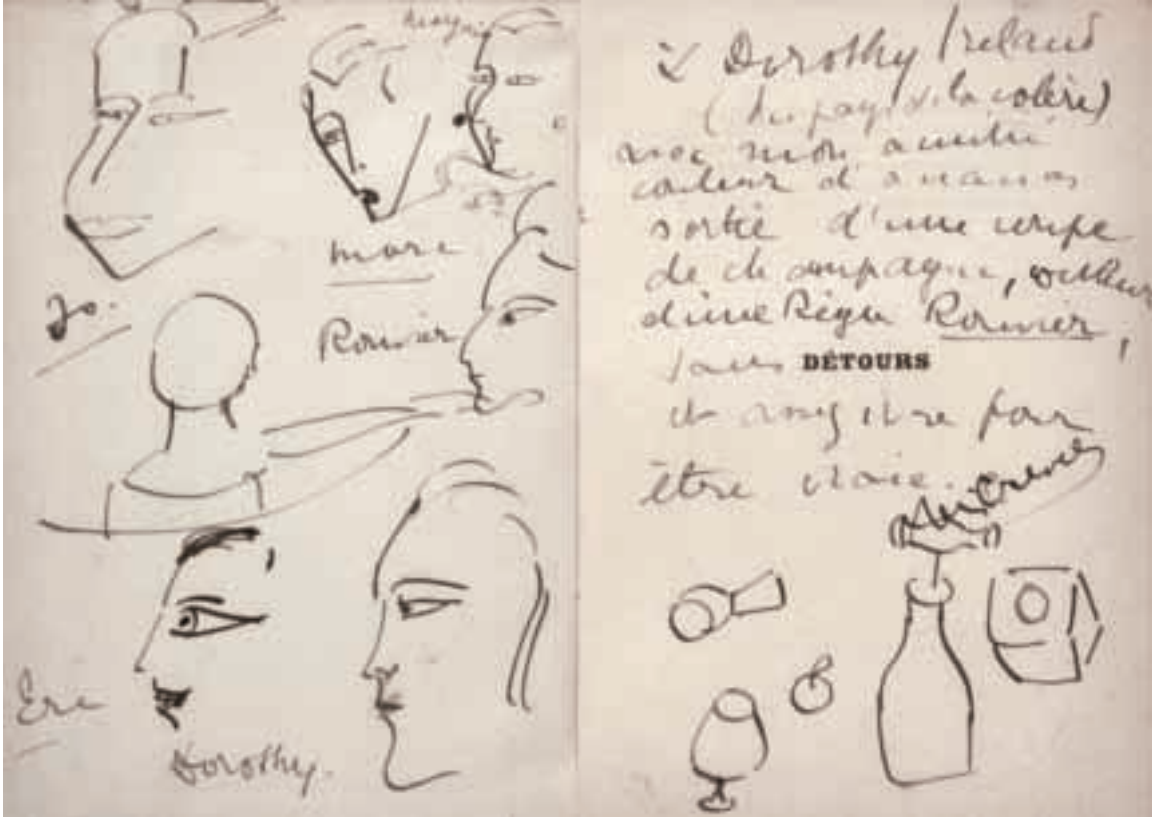 marc
Jo.
Rouvier
Eve
Dorothy.
à Dorothy Ireland
(du pays de la colère)
avec mon amitié
couleur d'ananas
sortie d'une coupe
de champagne,
d'une Rouvier,
sans DÉTOURS
et assez ivre pour
être vraie.